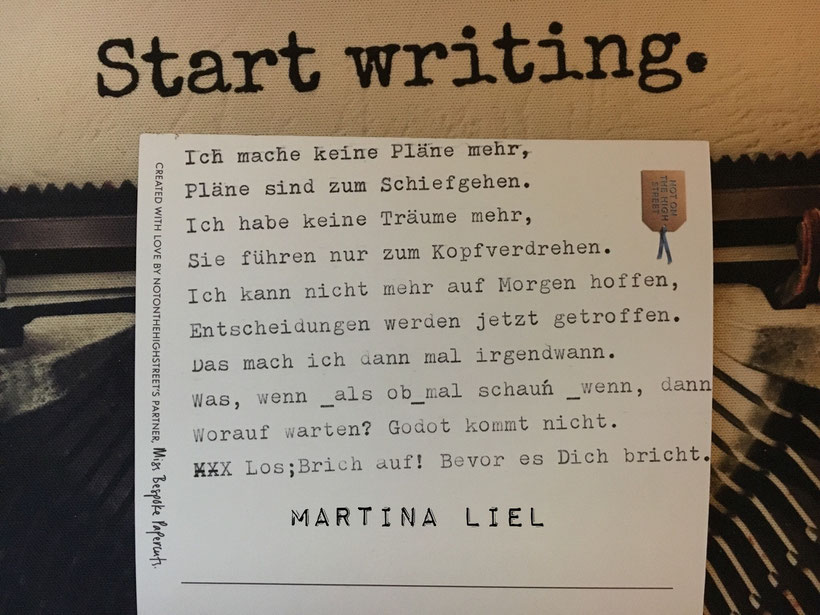 Start writing.
Ich mache keine Pläne mehr,
Pläne sind zum Schiefgehen.
Ich habe keine Träume mehr,
Sie führen nur zum Kopfverdrehen.
Ich kann nicht mehr auf Morgen hoffen,
Entscheidungen werden jetzt getroffen.
Das mach ich dann mal irgendwann.
Was, wenn _als ob_mal schauń _wenn, dann
Worauf warten? Godot kommt nicht.
XXX Los;Brich auf! Bevor es Dich bricht.
MARTINA LIEL
CREATED WITH LOVE BY NOTONTHEHIGHSTREET'S PARTNER, Miss Bespoke Papercuts.
NOT ON
THE HIGH
STREET